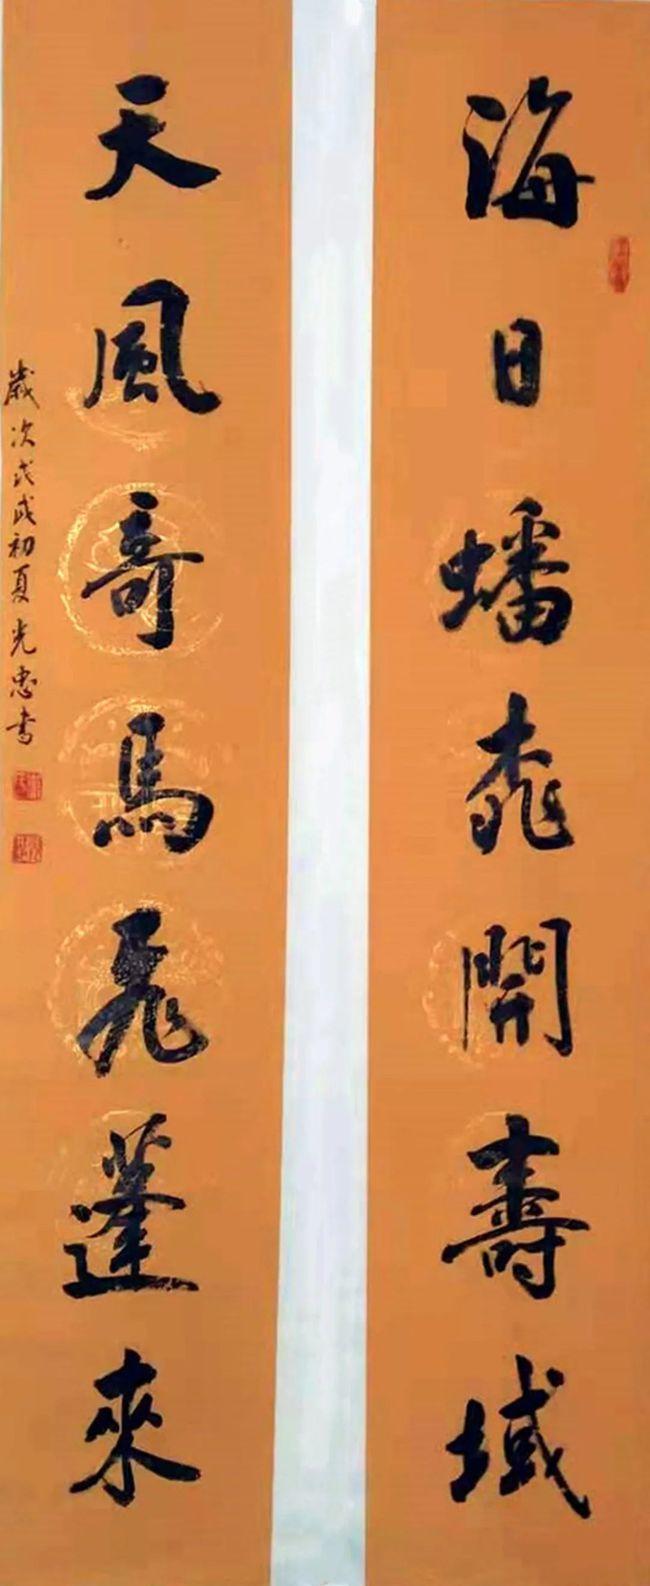 海日蟠桃開壽域
天風奇馬飛蓬來
歲次戊戌初夏光忠书